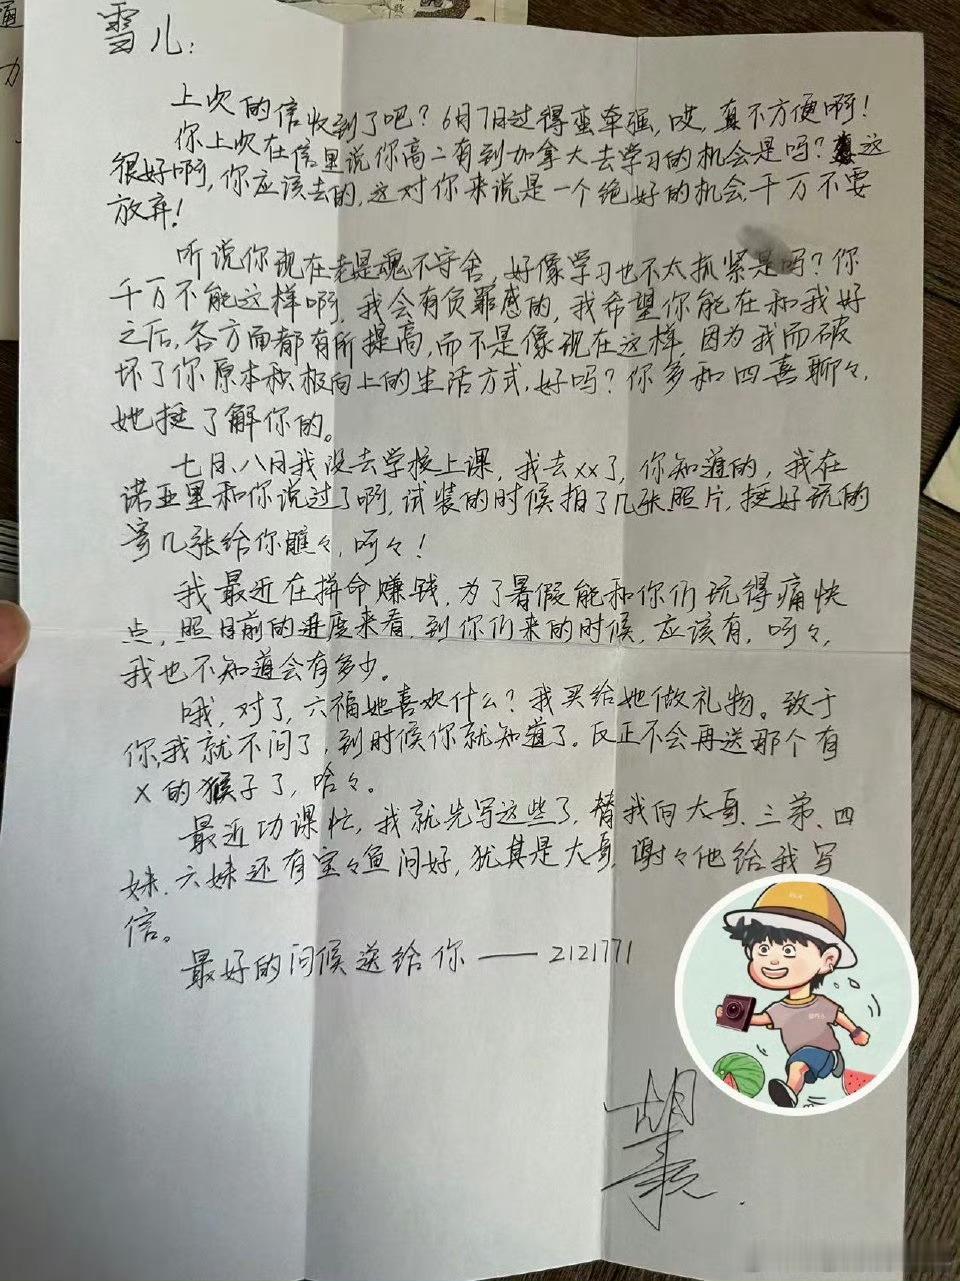 雪儿:
上次的信收到了吧？6月7日过得蛮牵强，哎，真不方便啊！
你上次在信里说你高二有到加拿大去学习的机会是吗？这
很好啊，你应该去的，这对你来说是一个绝好的机会，千万不要
放弃！
听说你现在老是魂不守舍，好像学习也不太抓紧是吗？你
千万不能这样啊，我会有负罪感的，我希望你能在和我好
之后，各方面都有所提高，而不是像现在这样，因为我而破
坏了你原本积极向上的生活方式，好吗？你多和四喜聊々，
她挺了解你的。
七月、八月我没去学校上课，我去xx了，你知道的，我在
诺亚里和你说过了啊，试装的时候拍了几张照片，挺好玩的
寄几张给你瞧々，呵々！
我最近在拼命赚钱，为了暑假能和你们玩得痛快
点，照目前的进度来看，到你们来的时候，应该有，呵々，
我也不知道会有多少。
哦，对了，六福她喜欢什么？我买给她做礼物。致于
你，我就不问了，到时候你就知道了。反正不会再送那个有
X的猴子了，哈々。
最近功课忙，我就先写这些了，替我向大哥、三弟、四
妹、六妹还有宝々鱼问好，犹其是大哥，谢々他给我写
信。
最好的问候送给你——2121771
胡